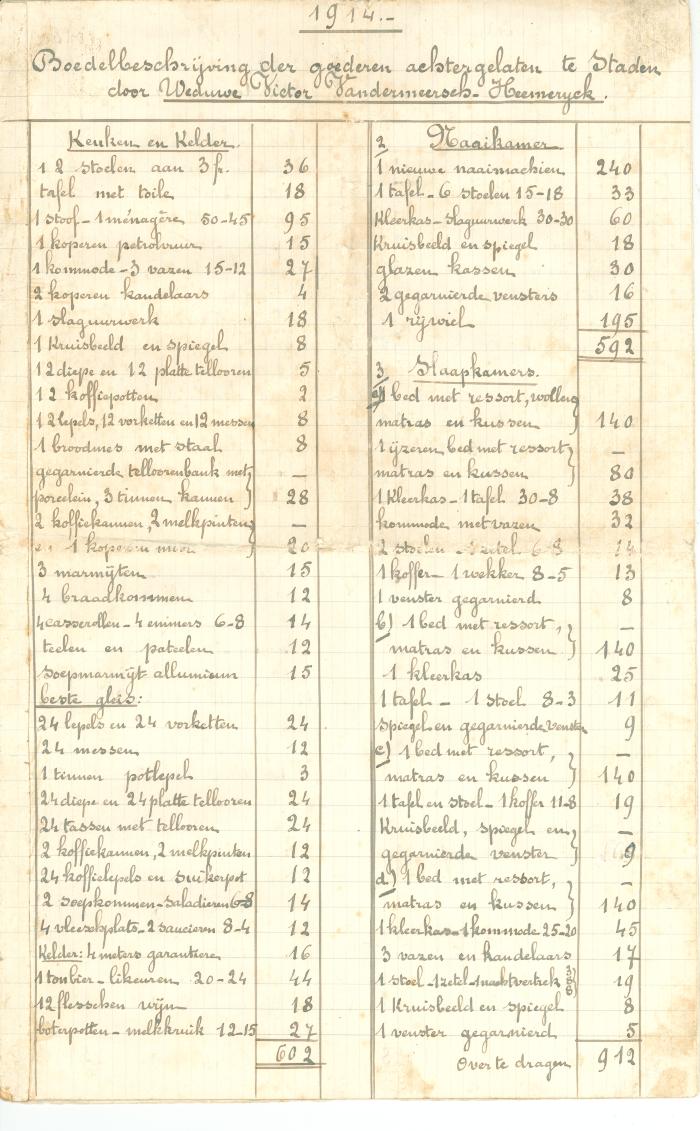 1914.-
Boedelbeschrijving der goederen achtergelaten te Staden
door Weduwe Victor Vandermeersch-Heemeryck.
Keuken en Kelder.
12 stoelen aan 3 fr. 36
tafel met toile 18
1 stoof-1 ménagère 50-45 95
1 koperen petrolvuur 15
1 kommode-3 vazen 15-12 27
2 koperen kandelaars 4
1 slaguurwerk 18
1 Kruisbeeld en spiegel 8
12 diepe en 12 platte tellooren 5
12 koffiepotten 2
12 lepels, 12 vorketten en 12 messen 8
1 broodmes met staal 8
gegarnierde telloorenbank met -
porcelein, 3 tinnen kannen 28
2 koffiekannen, 2 melkpinten -
en 1 koperen moor 20
3 marmijten 15
4 braadkommen 12
4 casserollen-4 emmers 6-8 14
teelen en pateelen 12
soepmarmijt allumieum 15
beste gleis:
24 lepels en 24 vorketten 24
24 messen 12
1 tinnen potlepel 3
24 diepe en 24 platte tellooren 24
24 tassen met tellooren 24
2 koffiekannen, 2 melkpinten 12
24 koffielepels en suikerpot 12
2 soepkommen-saladieren 6-8 14
4 vleeschplats-2 saucieren 8-4 12
Kelder: 4 meters garantiere 16
1 tonbier-likeuren 20-24 44
12 flesschen wijn 18
boterpotten-melkkruik 12-15 27
602
2 Naaikamer
1 nieuwe naaimachien 240
1 tafel-6 stoelen 15-18 33
Kleerkas-slaguurwerk 30-30 60
Kruisbeeld en spiegel 18
glazen kassen 30
2 gegarnierde vensters 16
1 rijwiel 195
592
3. Slaapkamers.
a) 1 bed met ressort, wollen
matras en kussen 140
1 ijzeren bed met ressort -
matras en kussen 80
1 Kleerkas-1 tafel 30-8 38
kommode met vazen 32
2 stoelen-1 zetel 6-8 14
1 koffer-1 wekker 8-5 13
1 venster gegarnierd 8
b) 1 bed met ressort, -
matras en kussen 140
1 kleerkas 25
1 tafel - 1 stoel 8-3 11
spiegel en gegarnierde venster 9
c) 1 bed met ressort, -
matras en kussen 140
1 tafel en stoel-1 koffer 11-8 19
Kruisbeeld, spiegel en -
gegarnierde venster 9
d) 1 bed met ressort, -
matras en kussen 140
1 kleerkas-1 kommode 25-20 45
3 vazen en kandelaars 17
1 stoel-1 zetel-1 nachtvertrek 3 8 8 19
1 Kruisbeeld en spiegel 8
1 venster gegarnierd 5
Over te dragen 912